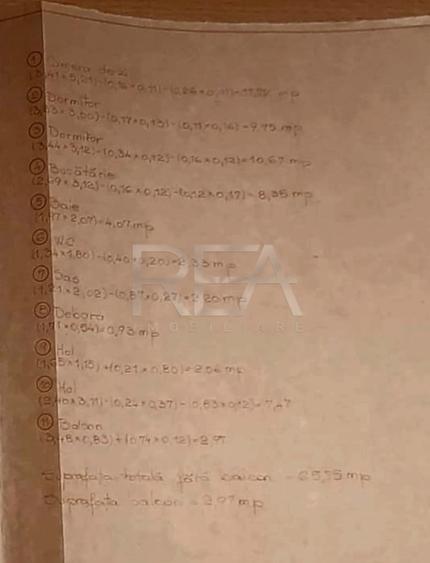 ① Camera de zi
(3,41×5,21)-(0,16×0,11)-(0,26×0,11)=
② Dormitor
-(0,17×0,13)-(0,11×0,16)= 9,75 mp
③ Dormitor
(3,44×3,12)-(0,34×0,12)-(0,16×0,12)=10,67 mp
④ Bucătărie
-(0,16×0,12)-(0,12×0,17)= 8,35 mp
⑤ Baie
(1,97×2,07)=4,07 mp
⑥ W.C
(1,34×1,80)-(0,40×0,20)=2,33 mp
⑦ Sas
(1,21×2,02)-(0,87×0,27)=2,20 mp
⑧ Debara
0,93 mp
⑨ Hol
+(0,21×0,80)=2,06 mp
⑩ Hol
(2,40×3,71)-(0,24×0,37)-(0,83×0,12)= 7,47
⑪ Balcon
(3,48×0,83)+(0,74×0,12)=2,97
Suprafața totală fără balcon = 65,95 mp
Suprafața balcon = 2,97 mp
REA
IMOBILIARE